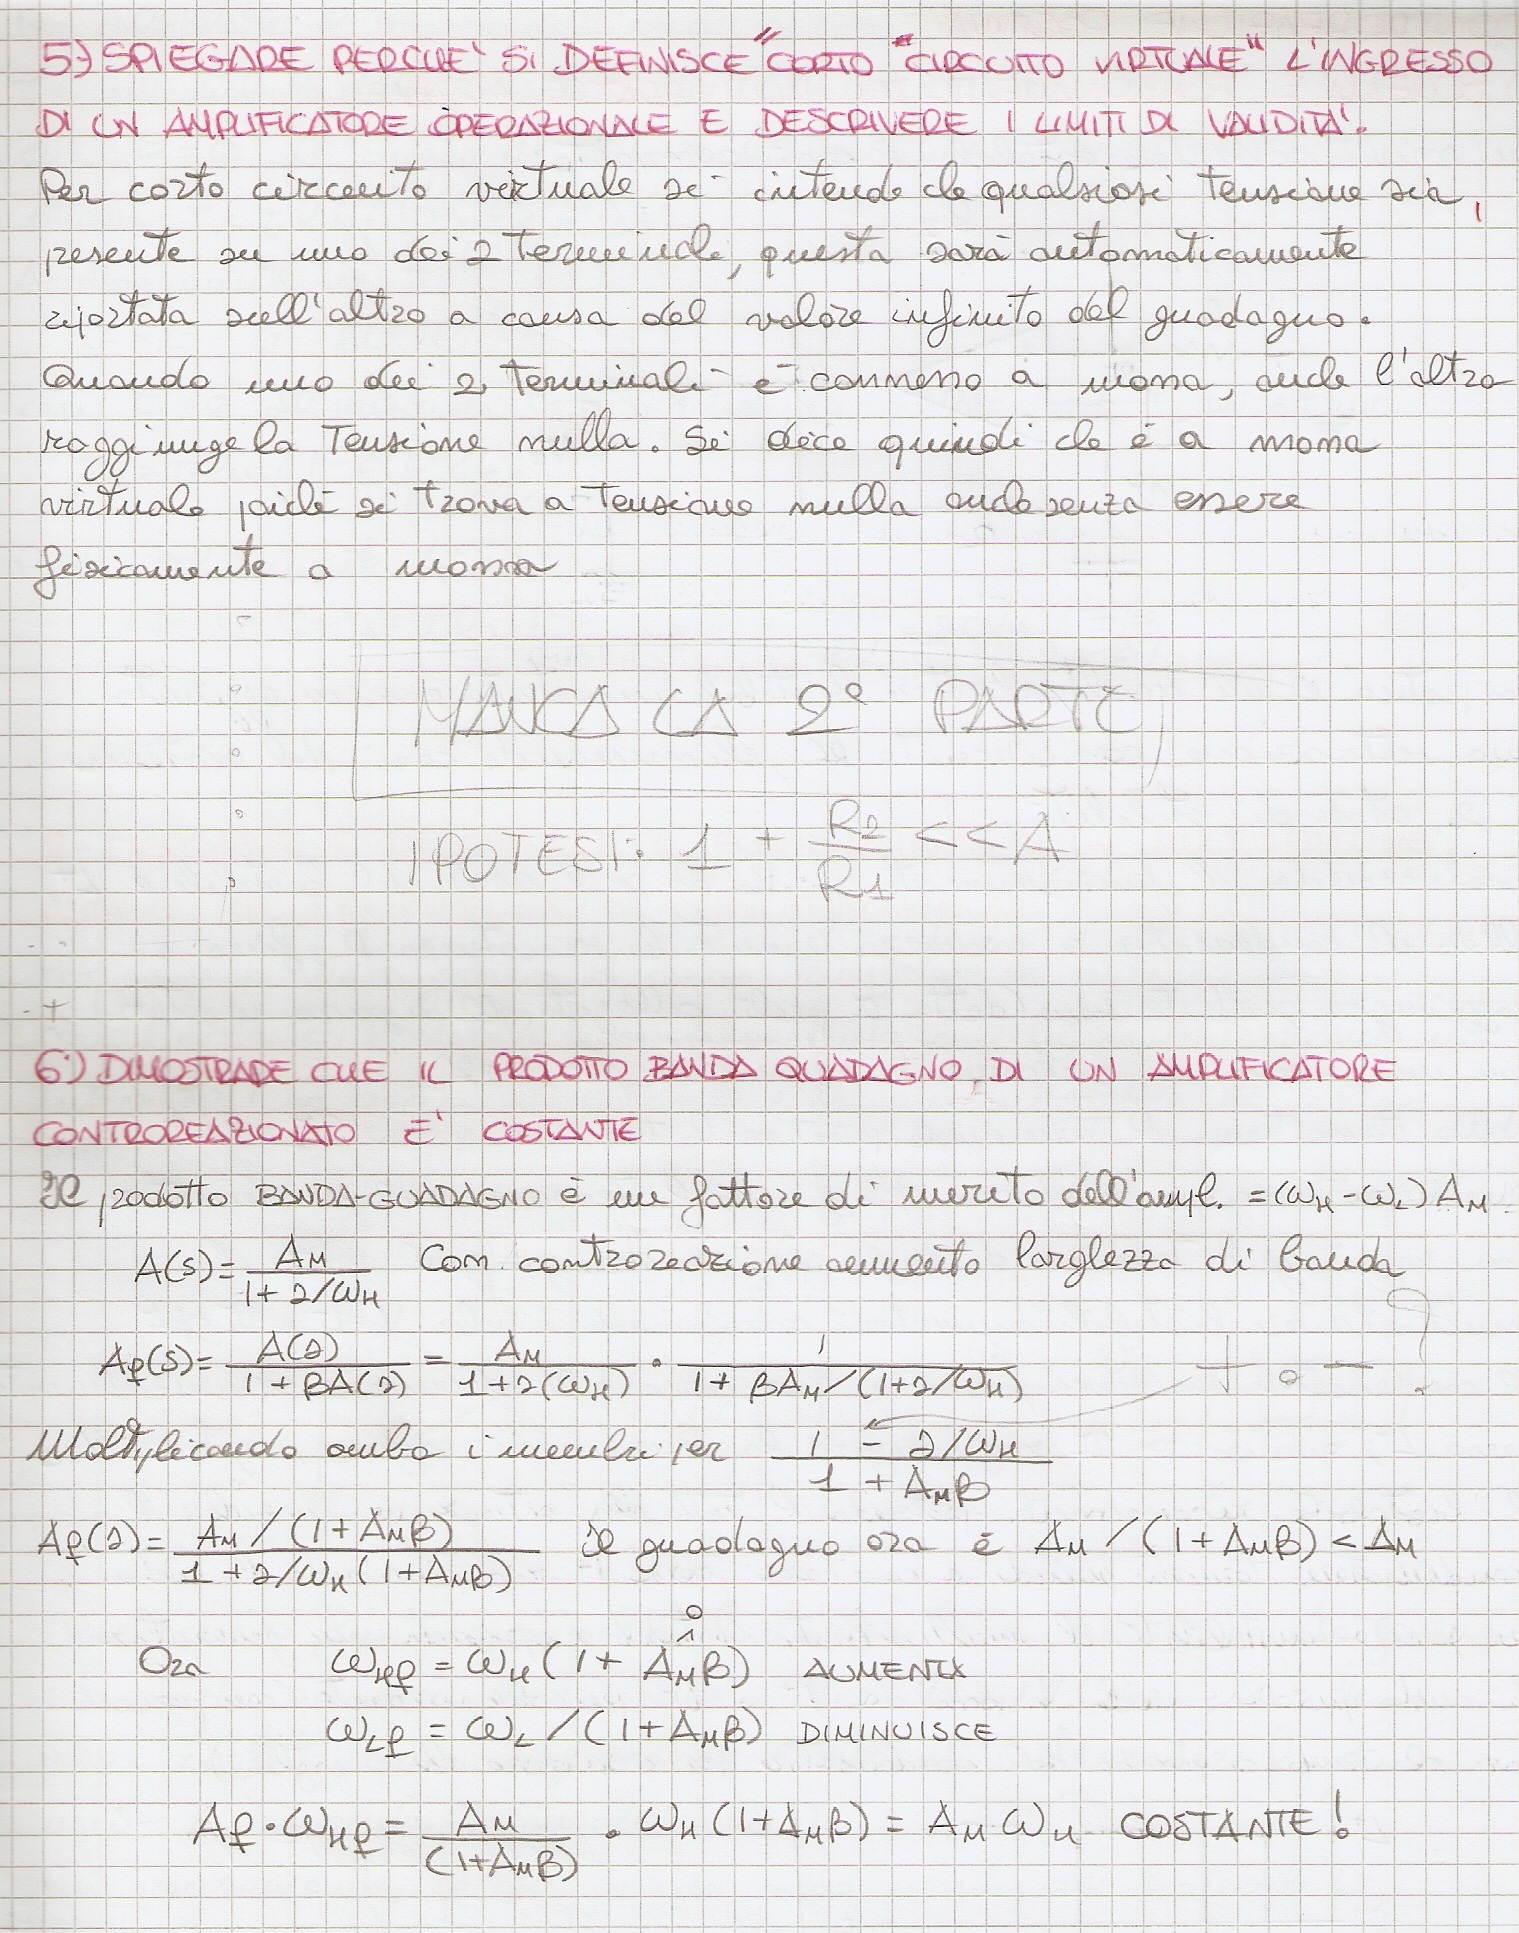 5) SPIEGARE PERCHE' SI DEFINISCE "CORTO CIRCUITO VIRTUALE" L'INGRESSO
DI UN AMPLIFICATORE OPERAZIONALE E DESCRIVERE I LIMITI DI VALIDITA'.
Per corto circuito virtuale si intende che qualsiasi tensione sia
presente su uno dei 2 terminali, questa sarà automaticamente
riportata sull'altro a causa del valore infinito del guadagno.
Quando uno dei 2 terminali è connesso a massa, anche l'altro
raggiunge la tensione nulla. Si dice quindi che è a massa
virtuale poiché si trova a tensione nulla anche senza essere
fisicamente a massa
MANCA LA 2° PARTE
IPOTESI: 1 + R2/R1 << A
6) DIMOSTRARE CHE IL PRODOTTO BANDA GUADAGNO DI UN AMPLIFICATORE
CONTROREAZIONATO E' COSTANTE
Il prodotto BANDA-GUADAGNO è un fattore di merito dell'ampl. = (ωH - ωL) AM
A(s) = AM / (1 + s/ωH) Con controreazione aumento larghezza di banda
Af(s) = A(s) / (1 + βA(s)) = AM / (1 + s(ωH)) · 1 / (1 + βAM/(1+s/ωH)) + o - ?
Moltiplicando ambo i membri per (1 = s/ωH) / (1 + AMβ)
Af(s) = (AM/(1+AMβ)) / (1 + s/ωH(1+AMβ)) il guadagno ora è AM/(1+AMβ) < AM
Ora ωHf = ωH(1 + AMβ) AUMENTA
ωLf = ωL/(1+AMβ) DIMINUISCE
Af·ωHf = AM/(1+AMβ) · ωH(1+AMβ) = AM ωH COSTANTE!